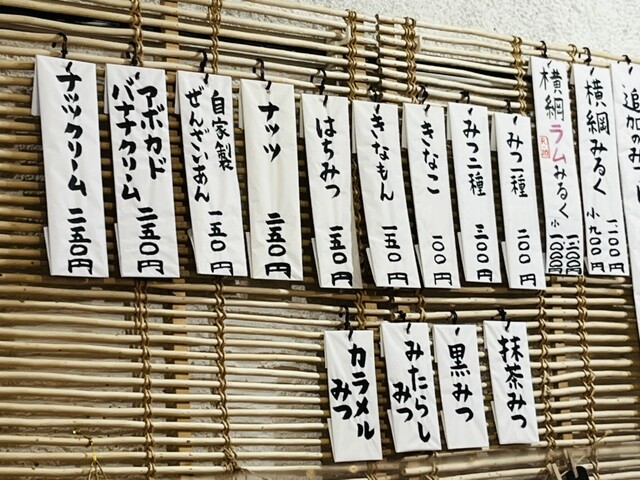 追加のみつ
横綱みるく 一二〇〇円
小九〇〇円
横綱ラムみるく
小一〇〇〇円
みつ一種 二〇〇円
みつ二種 三〇〇円
きなこ 一〇〇円
きなもん 一五〇円
はちみつ 一五〇円
ナッツ 二五〇円
自家製
ぜんざいあん 一五〇円
アボカド
バナナクリーム 二五〇円
ナッツクリーム 二五〇円
抹茶みつ
黒みつ
みたらし
みつ
カラメル
みつ